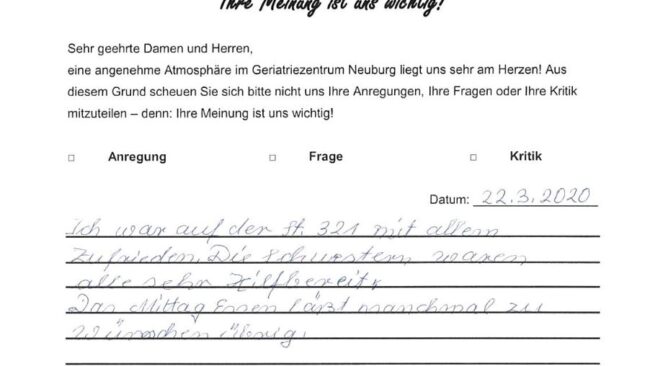 Ihre Meinung ist uns wichtig!
Sehr geehrte Damen und Herren,
eine angenehme Atmosphäre im Geriatriezentrum Neuburg liegt uns sehr am Herzen! Aus
diesem Grund scheuen Sie sich bitte nicht uns Ihre Anregungen, Ihre Fragen oder Ihre Kritik
mitzuteilen – denn: Ihre Meinung ist uns wichtig!
□ Anregung □ Frage □ Kritik
Datum: 22.3.2020
Ich war auf der St. 321 mit allem
Zufrieden. Die Schwestern waren
alle sehr Hilfbereit.
Das Mittag Essen läßt manchmal zu
Wünschen übrig.